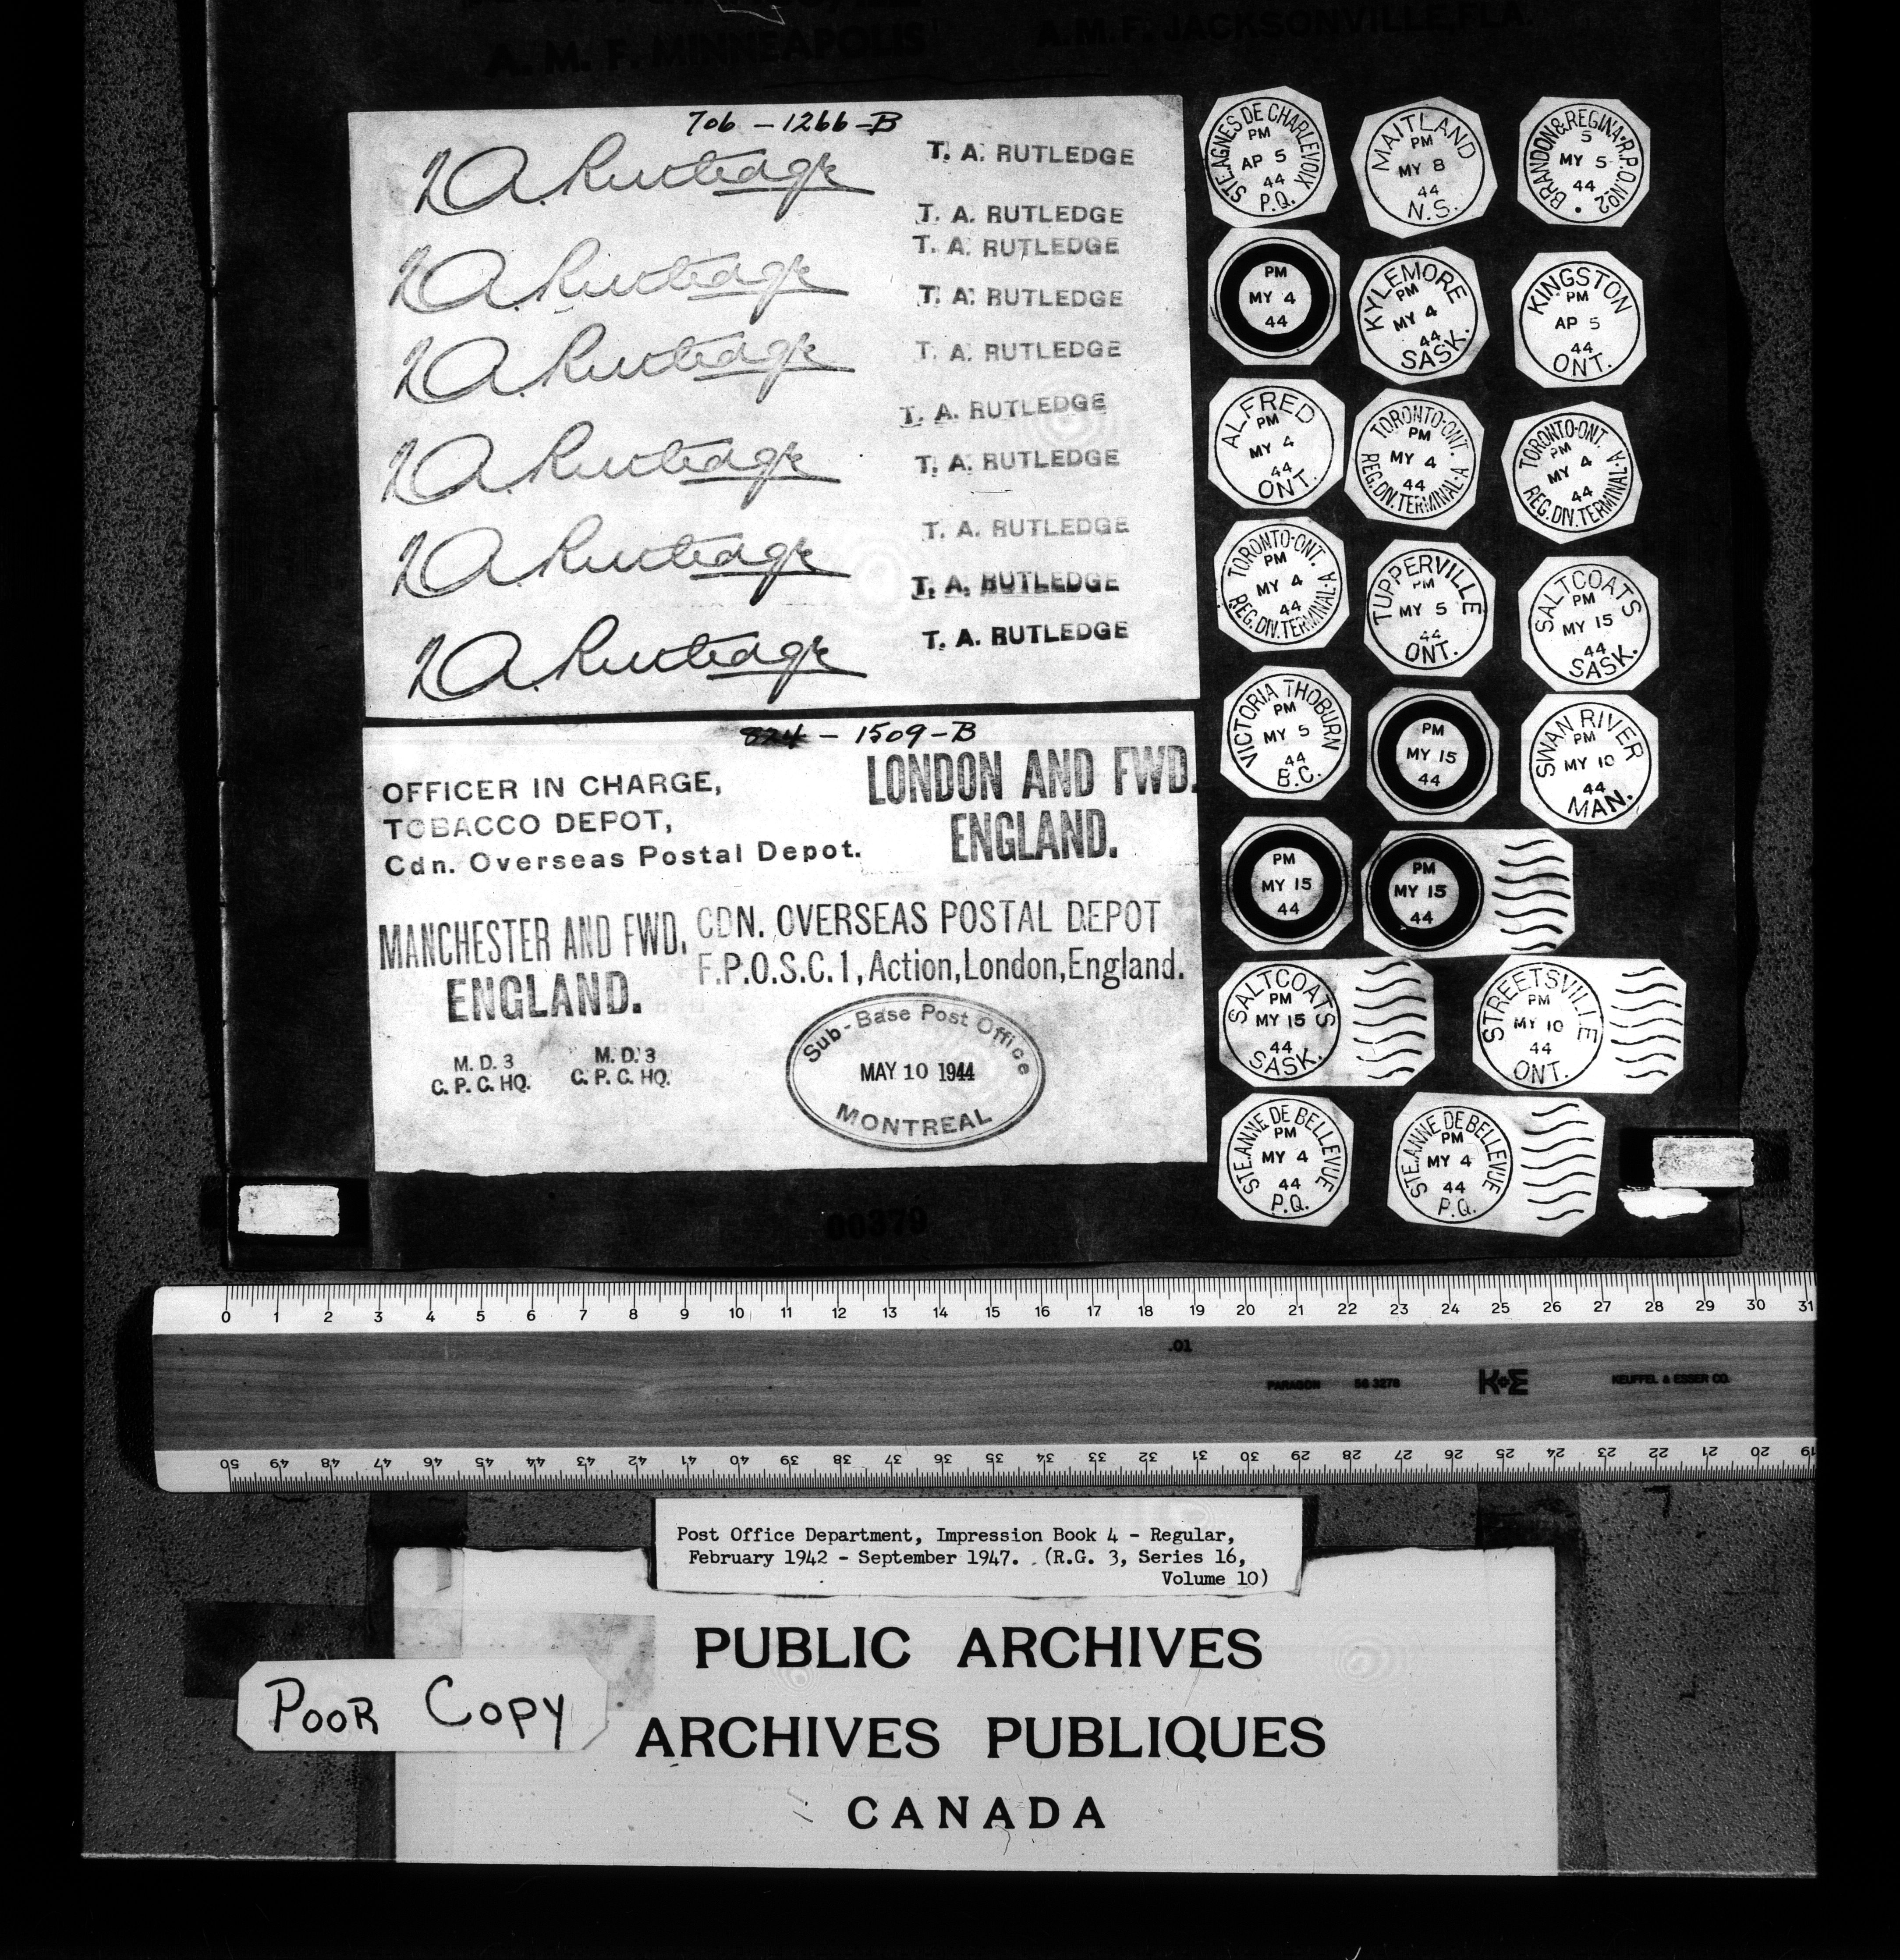 A. M. F. MINNEAPOLIS
A.M.F. JACKSONVILLE, FLA.
706 - 1266 - B
T. A. Rutledge
T. A. RUTLEDGE
T. A. RUTLEDGE
T. A. Rutledge
T. A. RUTLEDGE
T. A. RUTLEDGE
T. A. Rutledge
T. A. RUTLEDGE
T. A. RUTLEDGE
T. A. Rutledge
T. A. RUTLEDGE
T. A. RUTLEDGE
T. A. Rutledge
T. A. RUTLEDGE
T. A. RUTLEDGE
T. A. Rutledge
824 - 1509 - B
OFFICER IN CHARGE,
TOBACCO DEPOT,
Cdn. Overseas Postal Depot.
LONDON AND FWD.
ENGLAND.
MANCHESTER AND FWD.
ENGLAND.
CDN. OVERSEAS POSTAL DEPOT
F.P.O.S.C.1, Action, London, England.
M. D. 3
C. P. C. HQ.
M. D. 3
C. P. C. HQ.
Sub-Base Post Office
MAY 10 1944
MONTREAL
STE. AGNES DE CHARLEVOIX
PM
AP 5
44
P.Q.
MAITLAND
PM
MY 8
44
N.S.
BRANDON & REGINA.R.P.O.No2
5
MY 5
44
PM
MY 4
44
KYLEMORE
PM
MY 4
44
SASK.
KINGSTON
PM
AP 5
44
ONT.
ALFRED
PM
MY 4
44
ONT.
TORONTO-ONT.
PM
MY 4
44
REG.DIV.TERMINAL-A
TORONTO-ONT.
PM
MY 4
44
REG.DIV.TERMINAL-A
TORONTO-ONT.
PM
MY 4
44
REG.DIV.TERMINAL-A
TUPPERVILLE
PM
MY 5
44
ONT.
SALTCOATS
PM
MY 15
44
SASK.
VICTORIA THOBURN
PM
MY 5
44
B.C.
PM
MY 15
44
SWAN RIVER
PM
MY 10
44
MAN.
PM
MY 15
44
PM
MY 15
44
SALTCOATS
PM
MY 15
44
SASK.
STREETSVILLE
PM
MY 10
44
ONT.
STE. ANNE DE BELLEVUE
PM
MY 4
44
P.Q.
STE. ANNE DE BELLEVUE
PM
MY 4
44
P.Q.
00379
0 1 2 3 4 5 6 7 8 9 10 11 12 13 14 15 16 17 18 19 20 21 22 23 24 25 26 27 28 29 30 31
.01
PARAGON 56 3278 K+E KEUFFEL & ESSER CO.
50 49 48 47 46 45 44 43 42 41 40 39 38 37 36 35 34 33 32 31 30 29 28 27 26 25 24 23 22 21 20 19
Post Office Department, Impression Book 4 - Regular,
February 1942 - September 1947. (R.G. 3, Series 16,
Volume 10)
PUBLIC ARCHIVES
ARCHIVES PUBLIQUES
CANADA
POOR COPY